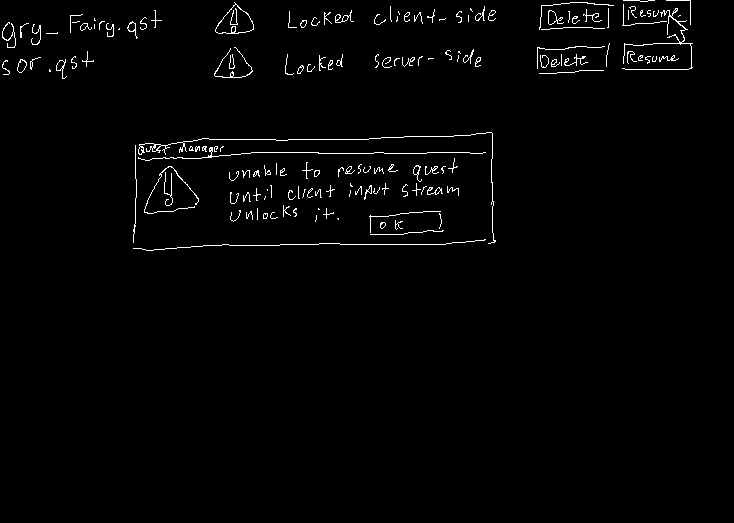 gry_Fairy.qst Locked client-side Delete Resume
sor.qst Locked server-side Delete Resume
Quest Manager
unable to resume quest
until client input stream
unlocks it.
OK